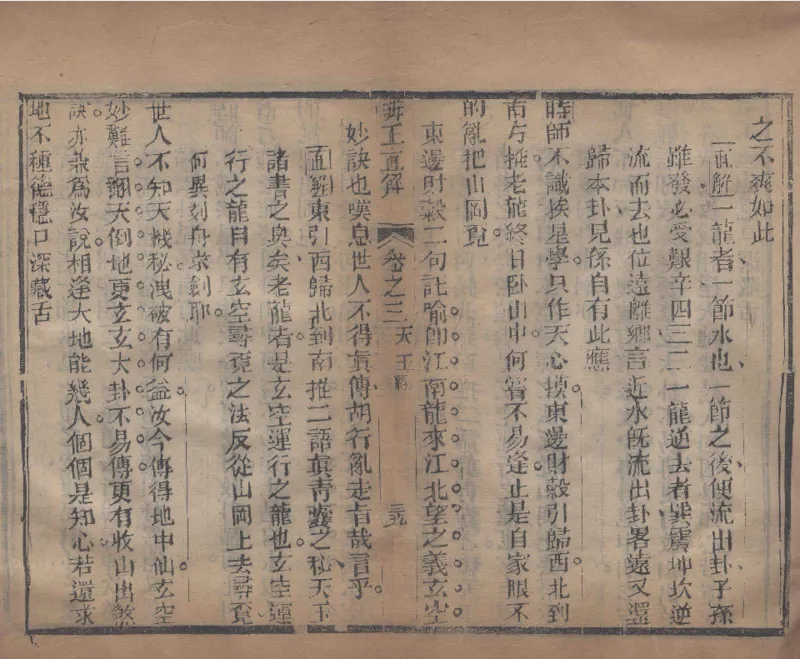 之不爽如此
直解一龍者一節水也一節之後便流出卦子孫
雖發必受艱辛四三二一龍逆去者巽震坤坎逆
流而去也位遠離鄉言近水既流出卦畧遠又還
歸本卦兄孫自有此應
時師不識挨星學只作天心摸東邊財穀引歸西北到
南方推老龍終日卧山中何嘗不易逢止是自家眼不
的亂把山岡覔
東邊財穀二句託喻即江南龍來江北望之義玄空
妙訣也嘆息世人不得眞傳胡行亂走旨哉言乎
辨正直解
卷之三
天玉經
三九
直解東引西歸北到南推二語眞青囊之秘天玉
諸書之奥矣老龍者是玄空運行之龍也玄空運
行之龍自有玄空尋覔之法反從山岡上去尋覔
何異刻舟求劍耶
世人不知天機秘洩破有何益汝今傳得地中仙玄空
妙難言翻天倒地更玄玄大卦不易傳更有收山出煞
訣亦兼爲汝說相逢大地能幾人個個是知心若還求
地不種德穩口深藏舌